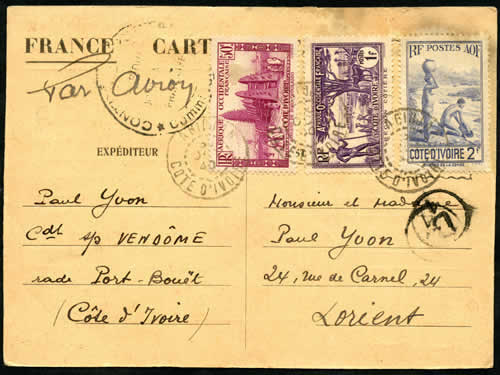 FRANCE CART
Par Avion
EXPÉDITEUR
AFRIQUE OCCIDENTALE FRANÇAISE 50c
CÔTE D'IVOIRE
RF
1F
RF POSTES AOF
CÔTE D'IVOIRE 2F
CÔTE D'IVOIRE
Paul Yvon
Cdt s/p VENDÔME
rade Port-Bouët
(Côte d'Ivoire)
Monsieur et Madame
Paul Yvon
24, rue de Carnel, 24
Lorient